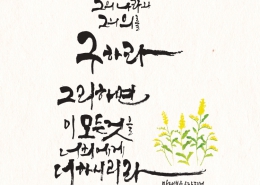 그의 나라와
그의 의를
구하라
그리하면
이 모든 것을
너희에게
더하시리라